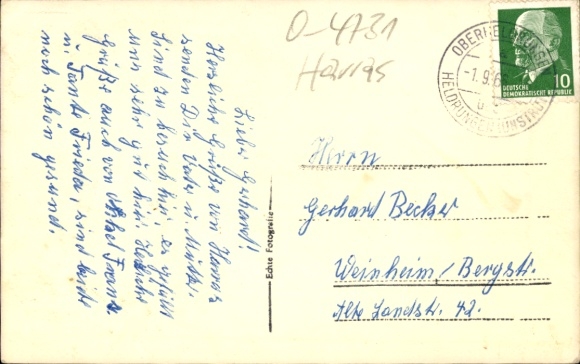 O-4731
Harras
OBERHELDRUNGEN
-1.9.6
HELDRUNGEN (UNSTRUT)
b
10
DEUTSCHE
DEMOKRATISCHE REPUBLIK
Lieber Gerhard!
Herzliche Grüße von Harras
senden Dir Vater u. Mutti.
Sind zu besuch hier, es gefällt
uns sehr gut hier. Herzliche
Grüße auch von Onkel Franz
u. Tante Frieda, sind beide
noch schön gesund.
Echte Fotografie
Herrn
Gerhard Becker
Weinheim/Bergstr.
Alte Landstr. 42.